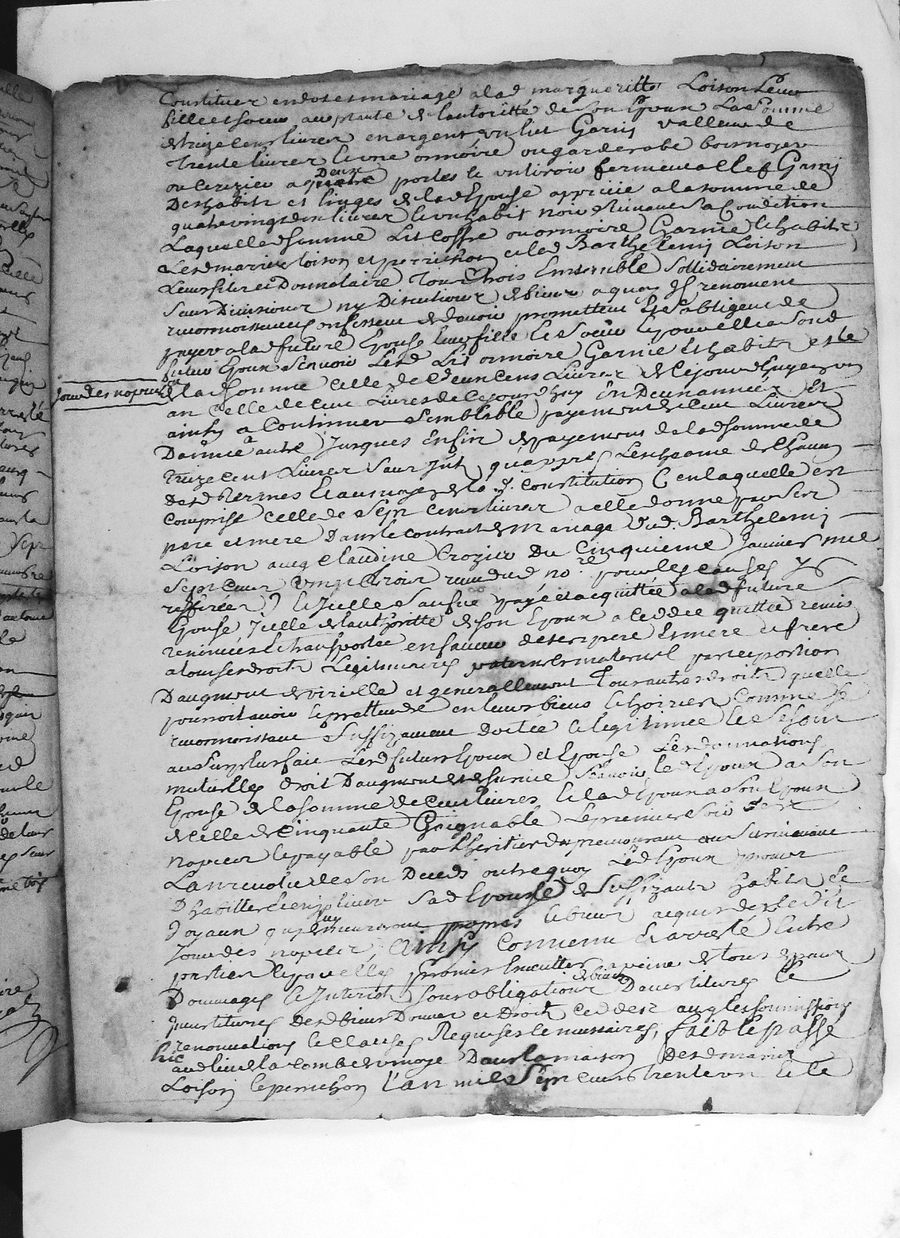 Constituer en dot et mariage a lad margueritte Loison Leur
fille et soeur acceptante de lautoritté de son Epoux La somme
de treize cens livres en argent un lict Garny valleur de
trente livres & une ormoire ou garderobe bois noyer
ou cerizier a deux portes & un tiroir fermentalles Garny
Dhabits et linges de lad Epouse apprecié a la somme de
quatrevingts dix livres & un habit noir suivant sa Condition
Laquelle somme Lit coffre ou ormoire Garnie & habits
Lesd mariés loison et perrichon et led Barthelemy Loison
Leur fils et Donnataire Tous trois Ensemble sollidairement
sans Divisions ny Discutions de biens a quoy ils renoncent
promettent & sobligent de
payer a lad future Epouse leur fille & soeur & pour elle a sond
futur Epoux scavoir Lesd Lit ormoire Garnie & habits
jour des nopces
de lad somme celle de deux cens Livres de ce jour dhuy en un
an celle de cent Livres de ce jour dhuy En Deux années Et
ainsy a Continuer semblable payement de cent Livres
Dannée a autre jusques Enfin de payement de lad somme de
treize cent Livres sans Int. quappres Lescheance de chacun
desd termes & au moyen de la p. constitution En laquelle est
comprise celle de sept cens livres a elle donné par ses
pere et mere Dans le contract de Mariage dud Barthelemi
Loison avec Claudine Crozier Du Cinquieme Janvier mil
sept cens vingt trois receu dud no.re pour les causes y
refferées & icelle sauf payé et acquittée a lad future
Epouse icelle de lauthoritté de son Epoux a ceddé quitté remis
renoncé & transporté en faveur de ses pere & mere et frere
a tous ses droits Legitimaires paternels maternel part et portion
Daugment de virielle et generallement Tous autres droits quelle
pourroit avoir & prettendre en leurs biens & hoiries Comme se
reconnoissant suffizament dottée & legitimée
au surplus fait Lesd futurs Epoux et Epouse Lesd donnations
mutuelles droit Daugment et de survie scavoir led Epoux a son
Epouse de la somme de cent livres & lad Epouse a son Epoux
de celle de cinquante Gaignable Le premier soir de
nopces & payable par Lheritier du premourant au survivant
Lan revolu de son Deceds outre quoy Led Epoux promet
Dhabiller & enjoliver sad Epouse de suffizants habits &
joyaux quy luy seront propres & bien acquis des ledit
jour des nopces, Ainsy convenu & arresté Entre
parties lesquelles promis Executter a peine de tous depans
Dommages & Interests sous obligations de biens
investitures desd biens Donnés et Droits ceddez aveq les soumissions
renonciations & clauses Requises & necessaires, fait & passé
audit lieu de la Combe Dans la maison desd mariés
Loison & perrichon l'an mil sept cens trente un & le